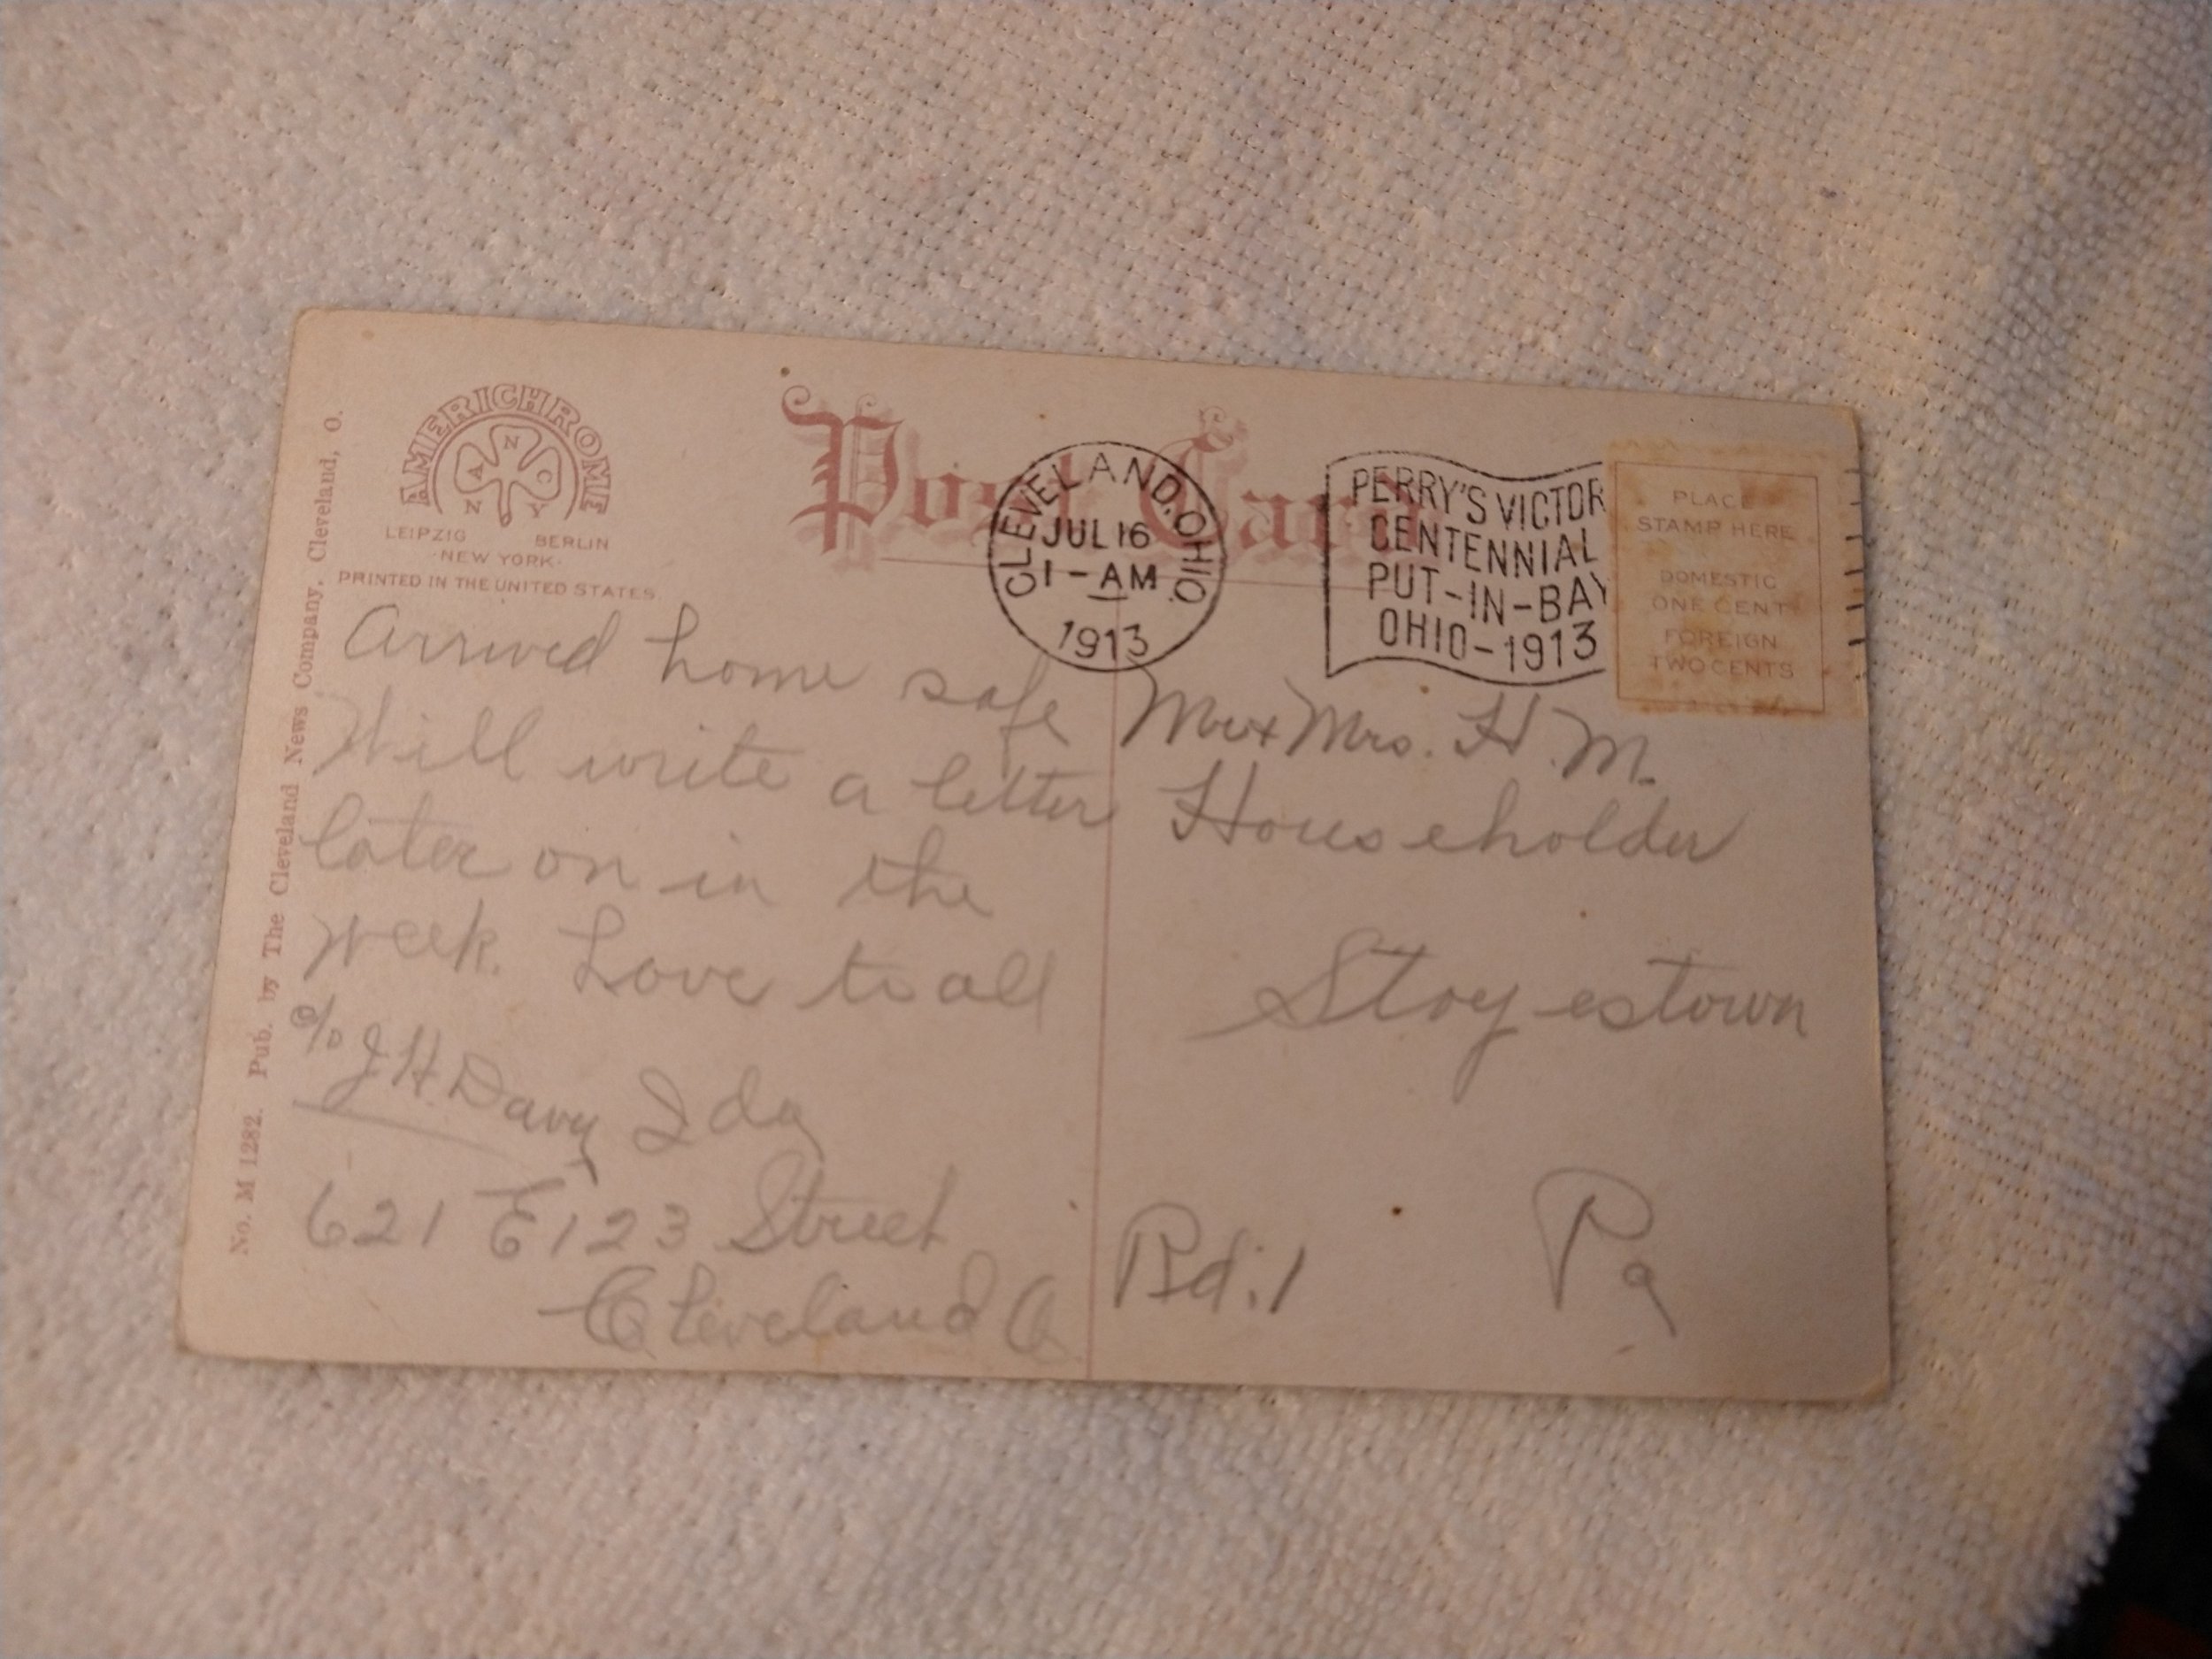 AMERICHROME
N A N C Y
LEIPZIG BERLIN
·NEW YORK·
PRINTED IN THE UNITED STATES
No. M 1282. Pub. by The Cleveland News Company, Cleveland, O.
Post Card
CLEVELAND, OHIO.
JUL 16
1-AM
1913
PERRY'S VICTOR
CENTENNIAL
PUT-IN-BAY
OHIO-1913
PLACE
STAMP HERE
DOMESTIC
ONE CENT
FOREIGN
TWO CENTS
Arrived home safe
Will write a letter
later on in the
week. Love to all
c/o J H. Davy Ida
621 E 123 Street
Cleveland O
Mr + Mrs. H. M.
Householder
Stoyestown
Rd. 1 Pa